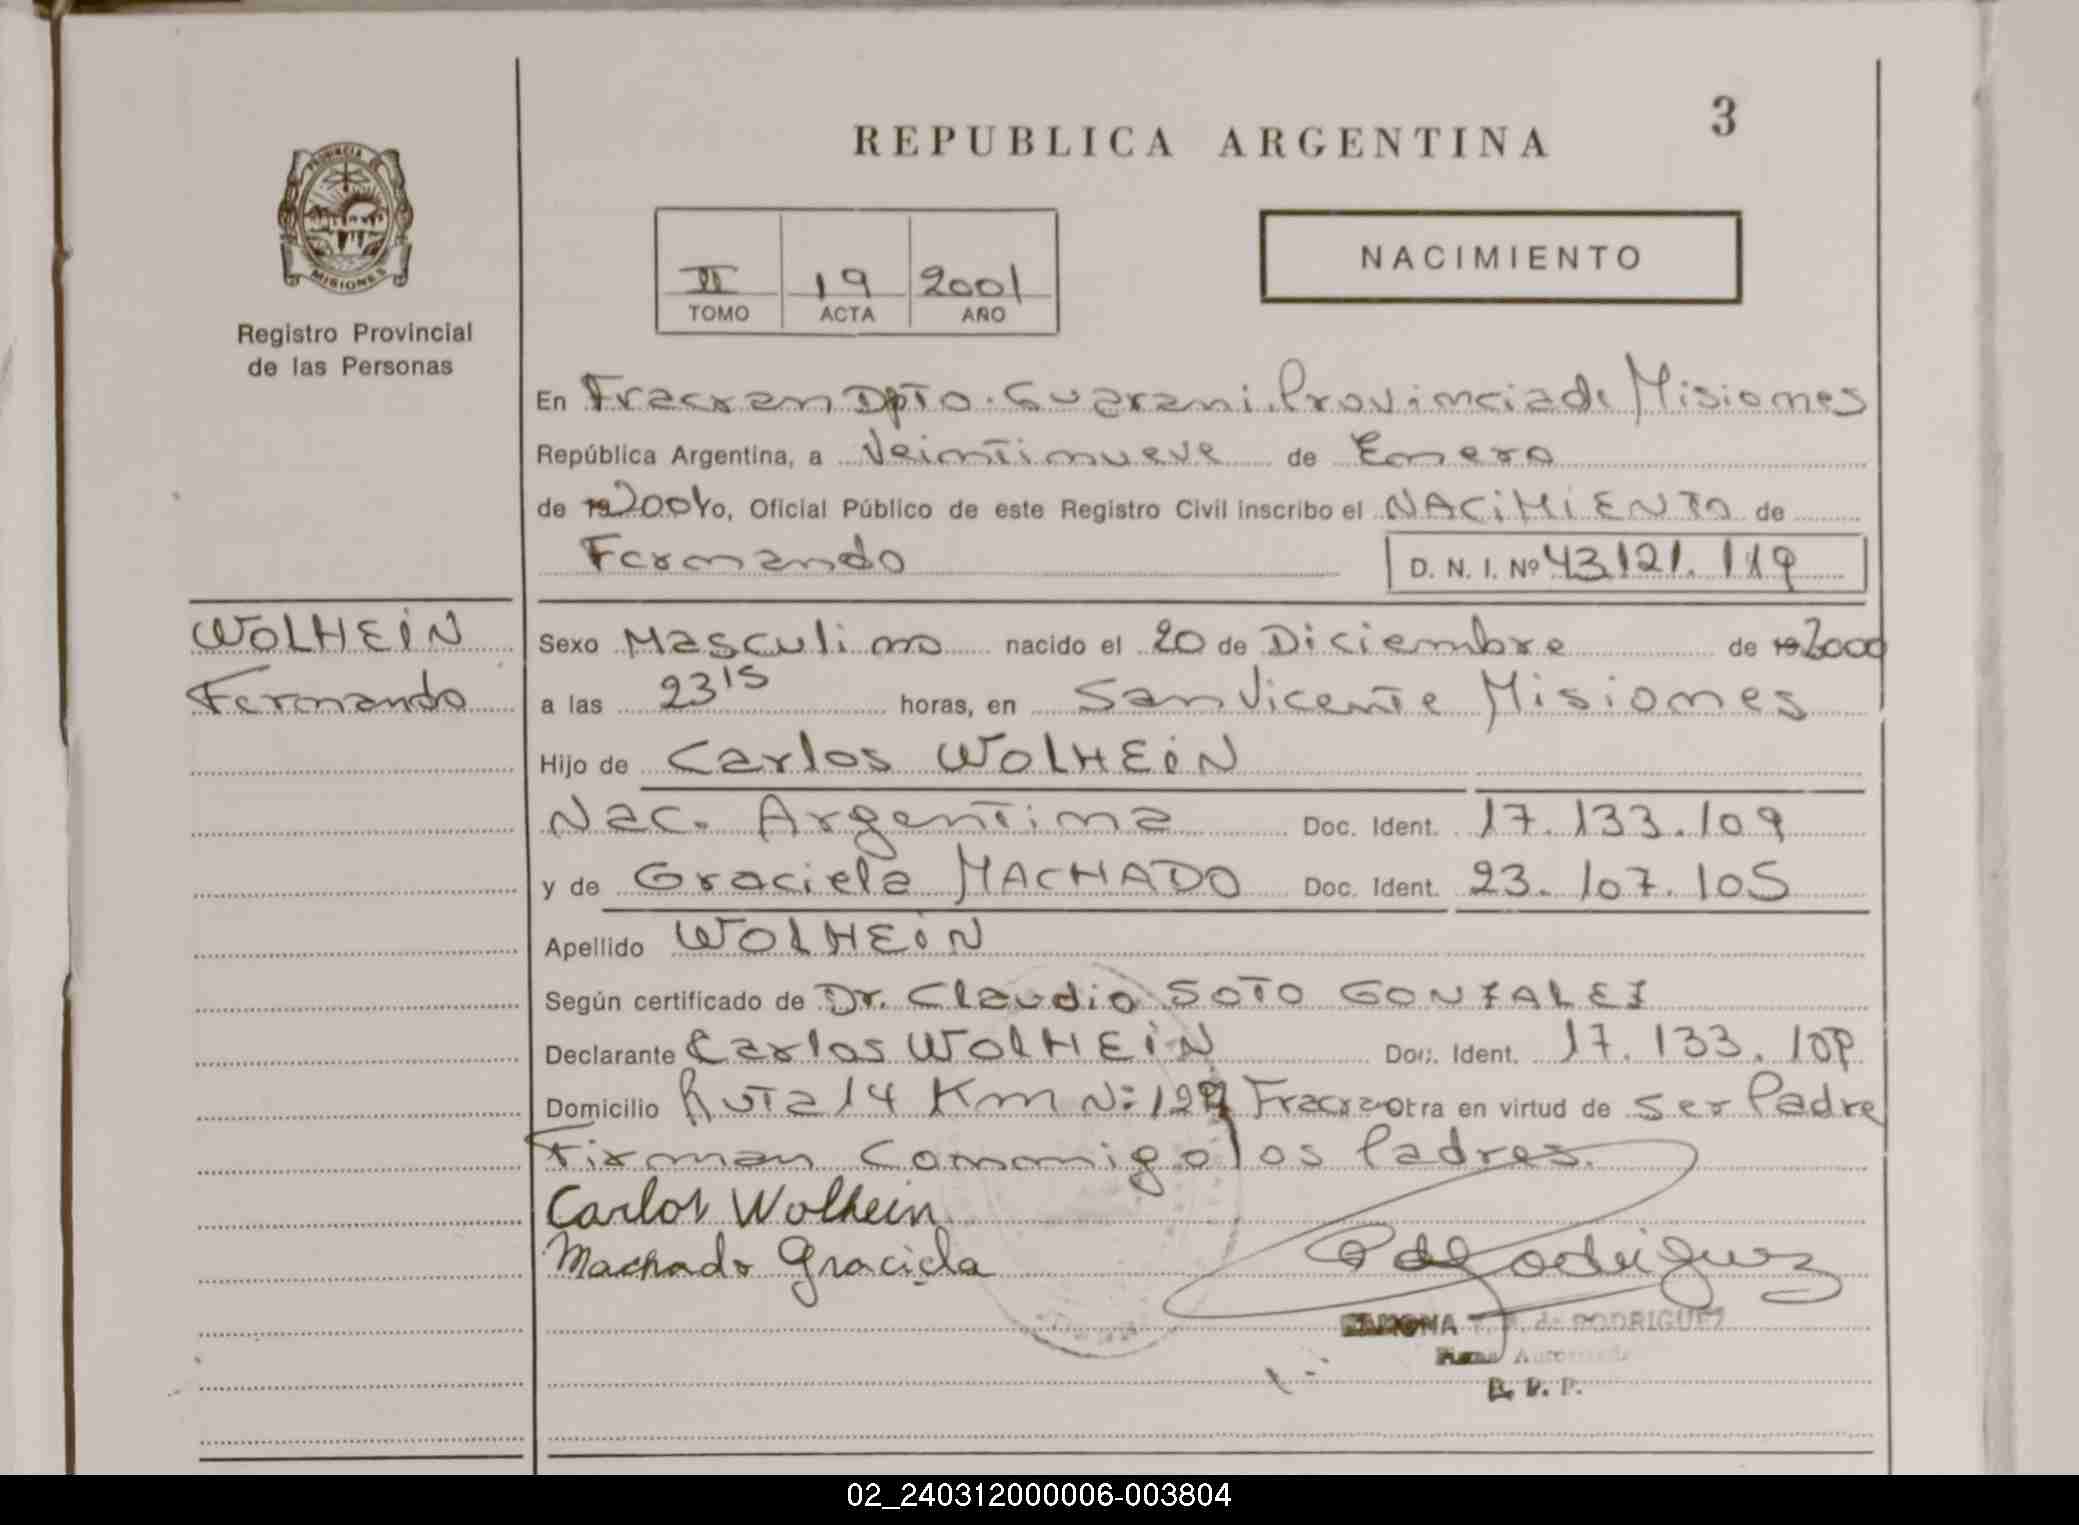 REPUBLICA ARGENTINA
3
PROVINCIA DE
MISIONES
Registro Provincial
de las Personas
II 19 2001
TOMO ACTA AÑO
NACIMIENTO
En Fracran Dpto. Guarani. Provincia de Misiones
República Argentina, a Veintinueve de Enero
de 192001 yo, Oficial Público de este Registro Civil inscribo el NACIMIENTO de
Fernando D. N. I. Nº 43.121.119
WOLHEIN
Fernando
Sexo Masculino nacido el 20 de Diciembre de 192000
a las 23 15 horas, en San Vicente Misiones
Hijo de Carlos WOLHEIN
Nac. Argentina Doc. Ident. 17.133.109
y de Graciela MACHADO Doc. Ident. 23.107.105
Apellido WOLHEIN
Según certificado de Dr. Claudio SOTO GONZALEZ
Declarante Carlos WOLHEIN Doc. Ident. 17.133.109
Domicilio Ruta 14 Km Nº: 127 Fracran Obra en virtud de ser Padre
Firman Conmigo los Padres.
Carlos Wolhein
Machado Graciela
Rodriguez
RAMONA de RODRIGUEZ
Firma Autorizada
R. P. P.
02_240312000006-003804